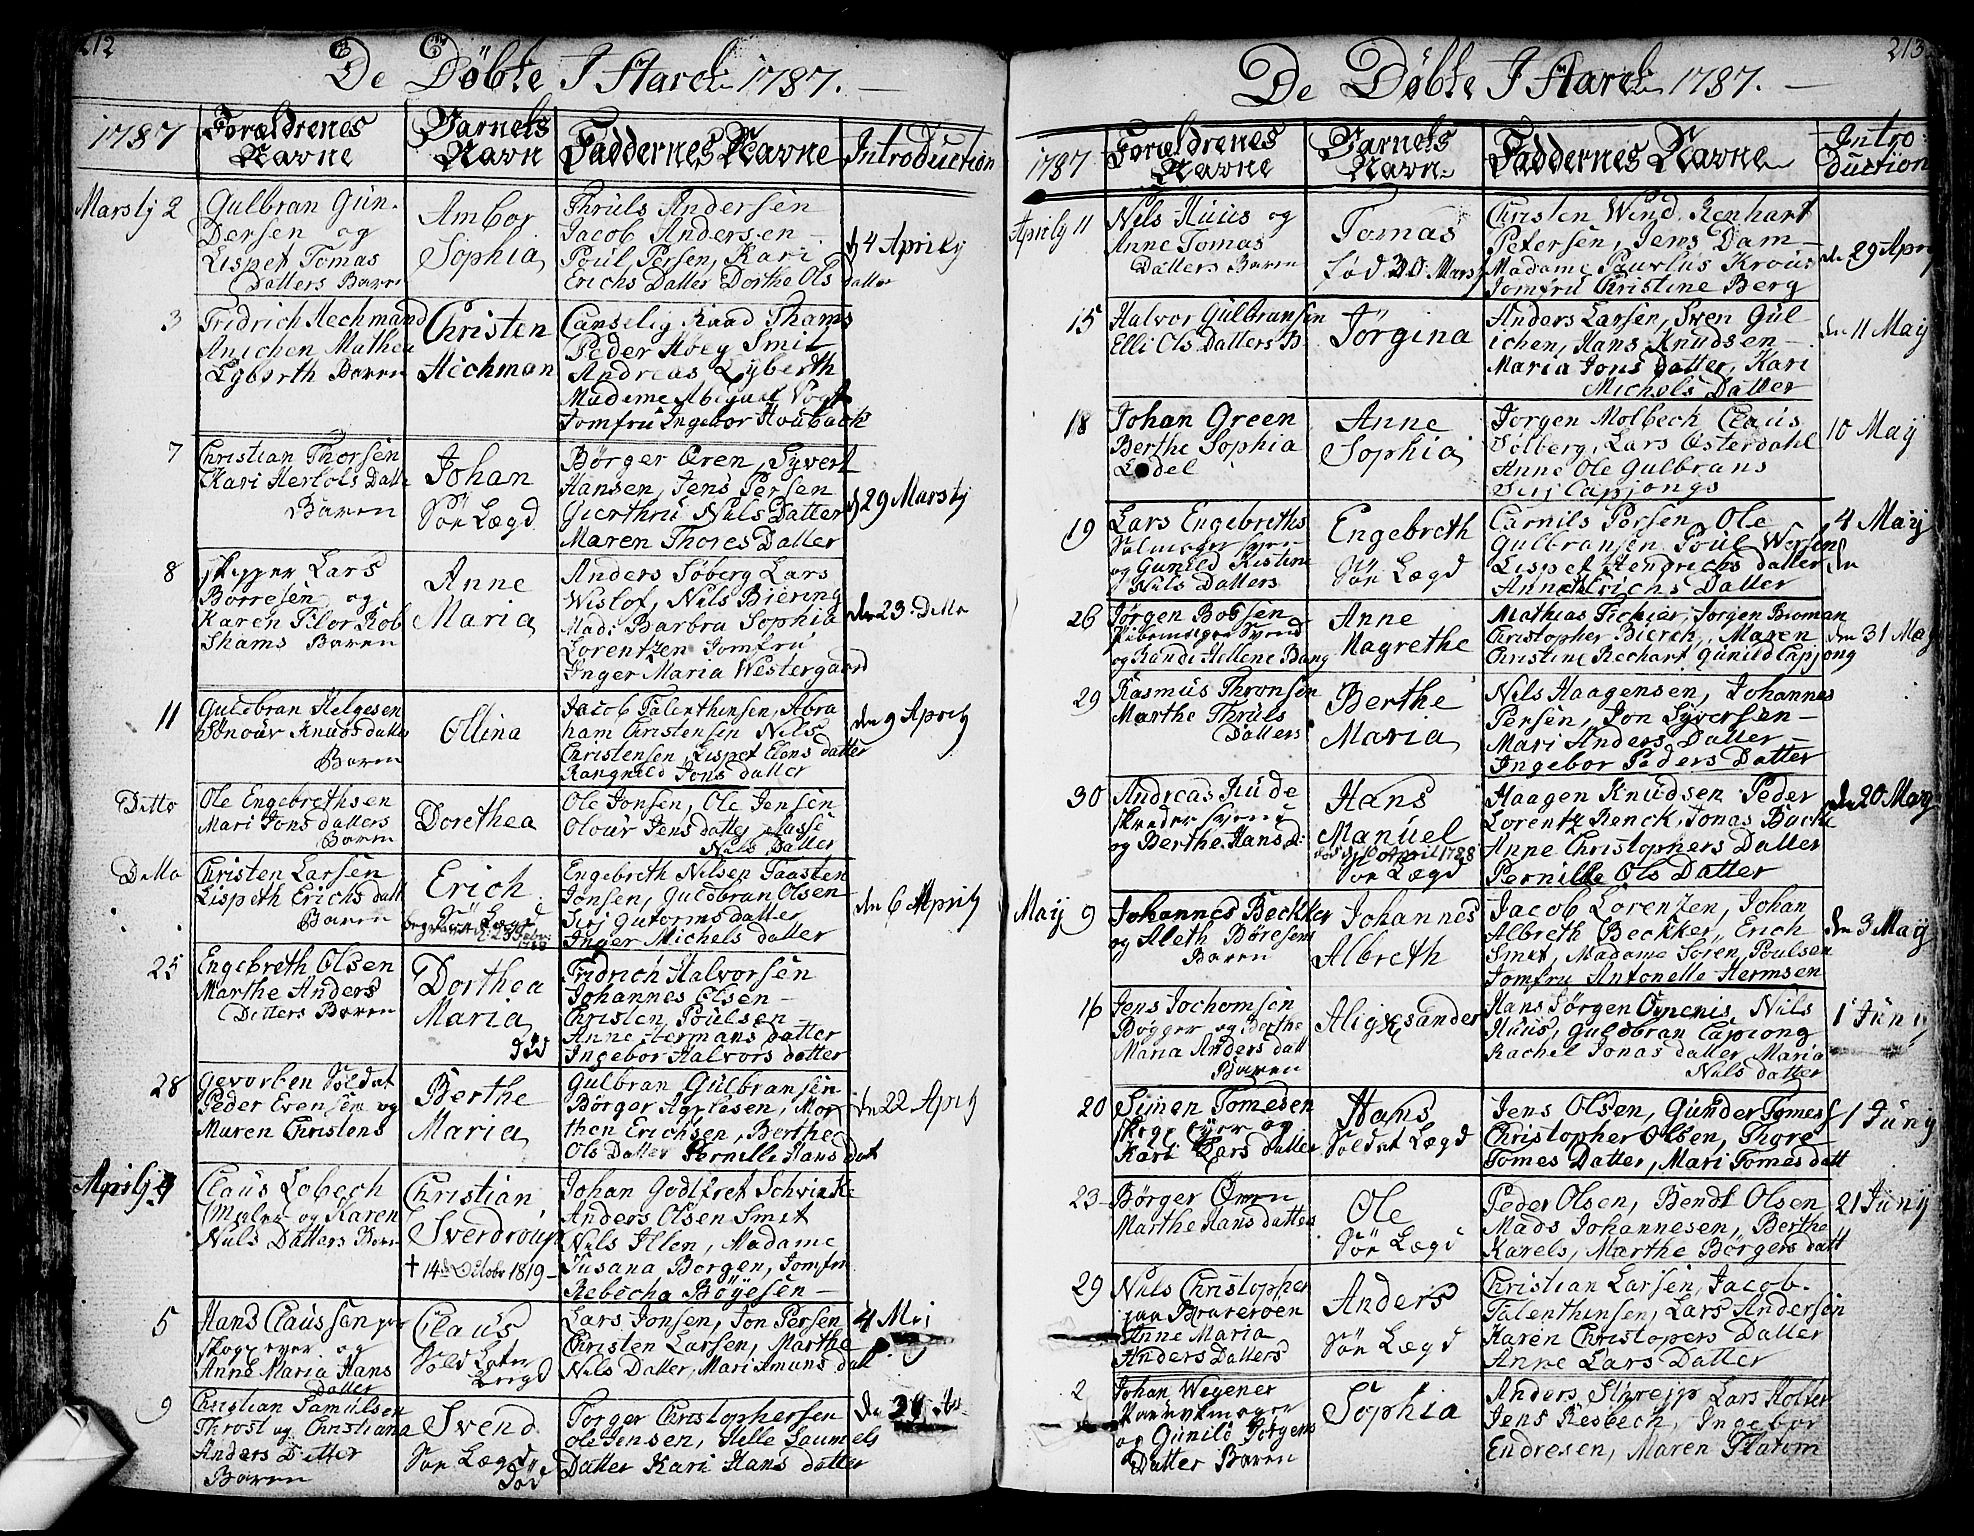 212
De Döbte I Starck 1787.
1787
Forældrenes Navne
Barnets Navn
Faddernes Navne
Introduction
Marsty 2
Gulbran Gun-
dersen og
Lispet Tomas
Datters Baren
Ambor
Sophia
Thruls Andersen
Jacob Andersen
Poul Persen, Kari
Erichs Datter Dorthe Ols datter
d 4 Aprily
3
Fridrich Aechmand
Anichen Mathea
Lyberth Baren
Christen
Aechman
Canselig Raad Thams
Peder Høeg Smit
Andreas Lyberth
Madame Abigael Vogt
Jomfru Ingebor Houbach
7
Christian Thorsen
Kari Hertols Datt
Baren
Johan
Sør Lægd
Børger Øren, Syvert
Hansen, Jens Persen
Gierthru Nils Datter
Maren Thores Datter
d 29 Marsty
8
skipper Lars
Borresen og
Karen Flor Rob
Shams Baren
Anne
Maria
Anders Søberg Lars
Wislof, Nils Biering
Mad: Barbra Sophia
Lorentzen Jomfru
Inger Maria Westergaard
den 23 ditto
11
Guldbran Helgesen
Sønour Knudsdatter
Baren
Ollina
Jacob Falenthinsen, Abra
ham Christensen Nils
Christensen, Lispet Elens datter
Rangnild Jons datter
den 9 Aprily
Ditto
Ole Engebrethsen
Mari Jons datters
Baren
Dorethea
Ole Jonsen, Ole Jensen
Olour Jens datter
Nils Datter
Ditto
Christen Larsen
Lispeth Erichs datt
Baren
Erich
Sør Lægd
Engebreth Nilsen Taasten
Jonsen, Guldbran Olsen
Sisj Gutorms datter
Inger Michels datter
den 6 Aprily
25
Engebreth Olsen
Marthe Anders
Datters Baren
Dorthea
Maria
død
Fridrich Halvorsen
Johannes Olsen
Christen Poulsen
Anne Hermans datter
Ingebor Halvors datter
28
Gevorben Soldat
Peder Evensen og
Maren Christens
Berthe
Maria
Gulbran Gulbransen
Børger Aslesen, Mor
then Erichsen, Berthe
Ols Datter Pernille Hans dat
den 22 Aprily
Aprily 4
Claus Lobech
Maler og Karen
Nils Datters Barn
Christian
Sverdroup
† 14de Octobr 1819
Johan Godtfret Schvinke
Anders Olsen Smit
Nils Illen, Madame
Susana Borgen, Jomfru
Rebecha Böyesen
5
Hans Claussen paa
skogs eyer og
Anne Maria Hans
Datter
Claus
Sold Lægd
Lars Jonsen, Jon Persen
Christen Larsen, Marthe
Nils Datter, Mari Amunsdatt
4 Mei
9
Christian Samuelsen
Throst og Christiana
Anders Datter
Baren
Svend
Sør Lægd
død
Torger Christophersen
Ole Jensen, Helle Saumels
Datter Kari Hans datter
213
De Döbte I Starck 1787.
1787
Forældrenes Navne
Barnets Navn
Faddernes Navne
Introduction
Aprily 11
Nils Huus og
Anne Tomas
Datters Baren
Tomas
fød 20 Mars
Christen Wind, Renhart
Petersen, Jens Dam
Madame Paurlus Kraus
Jomfru Christine Berg
den 29 Apr
15
Halvor Gulbransen
Elli Ols Datters B
Jörgina
Anders Larsen, Swen Gul
ichen, Hans Knudsen
Maria Jons Datter, Kari
Michels Datter
den 11 Maij
18
Johan Green
Berthe Sophia
Lodel
Anne
Sophia
Jorgen Molbech Claus
Solberg, Lars Osterdahl
Anne Ole Gulbrans
Sisj Capjongs
10 Maij
19
Lars Engebreths
Salmager
og Gunild Kistine
Nils Datters
Engebreth
Sør Lægd
Carnils Persen, Ole
Gulbransen Poul Wersen
Lispet Hendrichs datter
Anne Erichs Datter
4 Maij
den
26
Jörgen Boesen
Svend
og Randi Hellene Bang
Anne
Magrethe
Mathias Fichier, Jorgen Broman
Christopher Bierch, Maren
Christine Rechart Gunild Capjong
den 31 Maj
29
Rasmus Thronsen
Marthe Thruls
Datters
Berthe
Maria
Nils Haagensen, Johannes
Persen, Jon Syversen
Mari Anders Datter
Ingebor Peders Datter
30
Andreas Rude
skreder
og Berthe Hans d:
Hans
Manuel
April 1788
Sør Lægd
Haagen Knudsen Peder
Lorentz Renck, Jonas Bache
Anne Christophers Datter
Pernille Ols Datter
den 20 Maij
Maij 9
Johannes Beckker
og Aleth Børesens
Baren
Johannes
Albreth
Jacob Lorenzen, Johan
Albreth Beckker, Erich
Smit, Madame Soren Poulsen
Jomfru Antonelle Hermsen
den 3 Maij
16
Jens Jochomsen
Bøgger og Berthe
Maria Anders datt
Baren
Aligxsander
Hans Jörgen Omenis, Nils
Huus, Guldbran Capiong
Rachel Jonas datter Maria
Nils datter
1 Juny
20
Simen Tomesen
skogs eyer og
Kari Lars datter
Hans
Soldat Lægd
Jens Olsen, Gunder Tomes
Christopher Olsen, Thore
Tomes Datter, Mari Tomes datt
1 Juny
23
Børger Ommen
Marthe Hans datters
Ole
Sør Lægd
Peder Olsen, Bendt Olsen
Mads Johannesen, Berthe
Karels, Marthe Börgers datt
21 Juny
29
Nils Christopher
paa Braterøen
Anne Maria
Anders Datters
Anders
Sør Lægd
Christian Larsen, Jacob
Falenthinsen, Lars Andersen
Karen Christopers Datter
Anne Lars Datter
2
Johan Wegener
Parukmager
og Gunild Jorgens
Datter Baren
Sophia
Anders Lars Holter
Jens Resbech, Ingebor
Endresen, Maren Starom